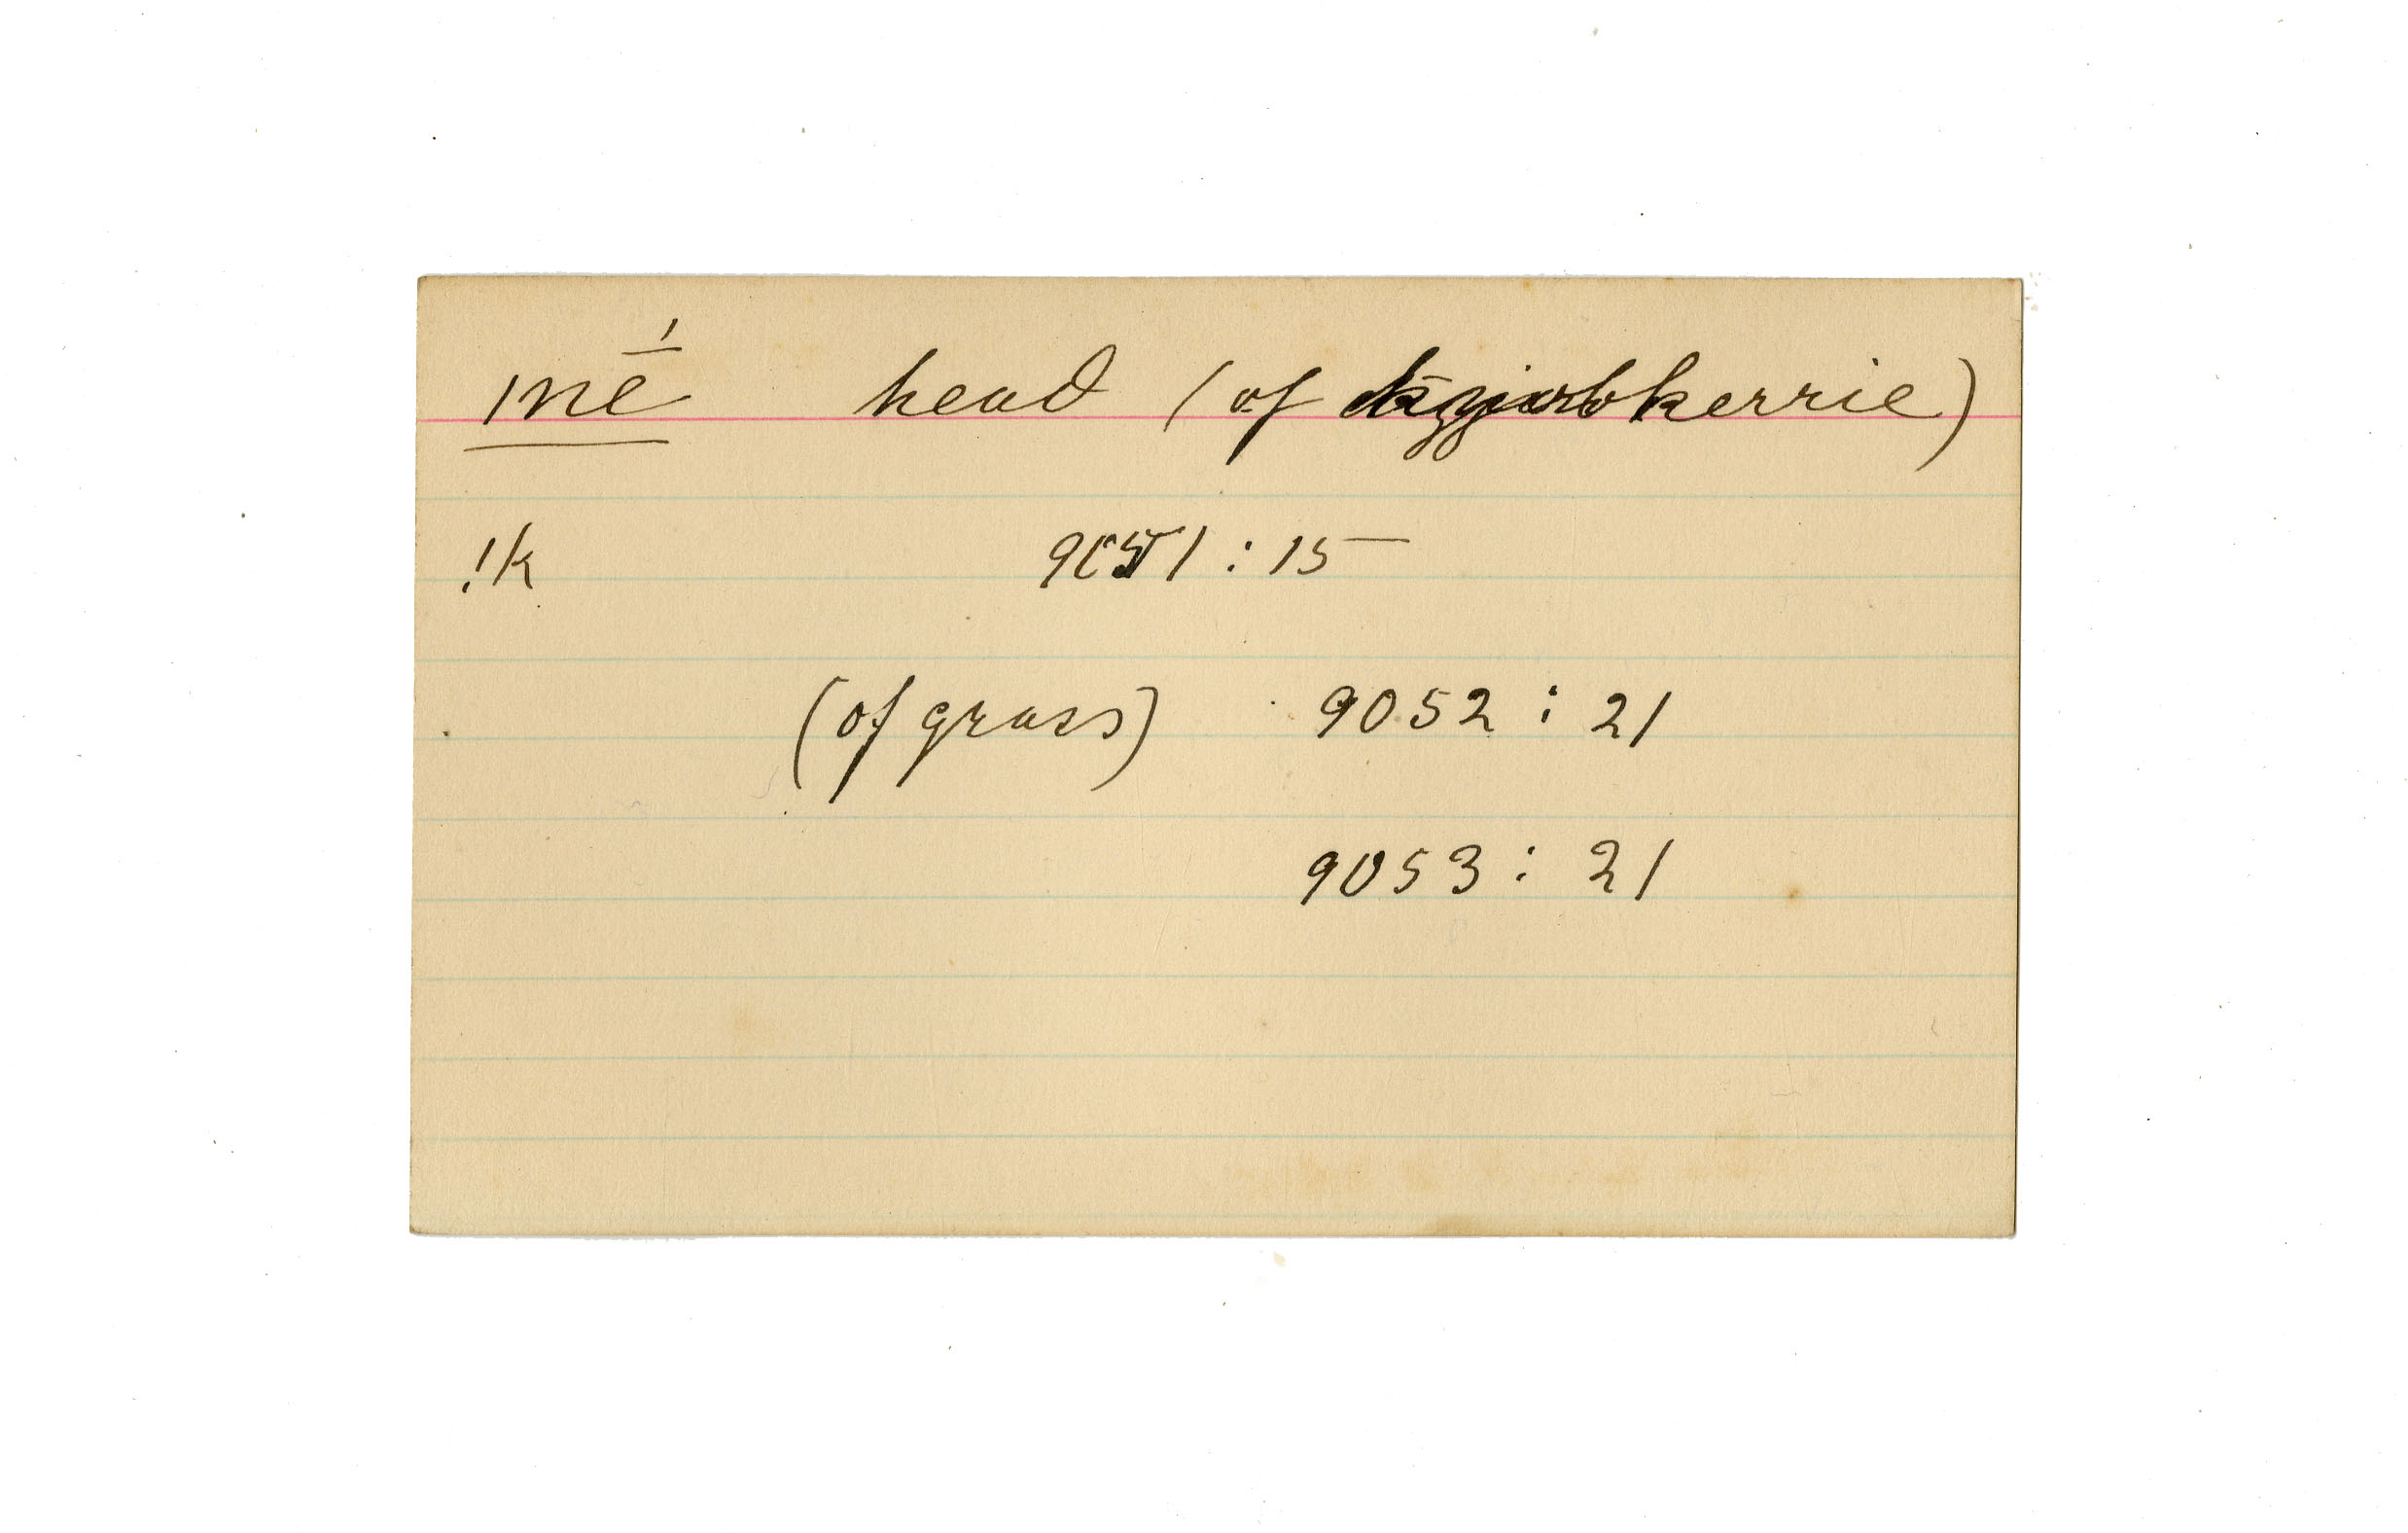 ǀnḗ head (of kerrie)
!k 9051 : 15
(of grass) 9052 : 21
9053 : 21